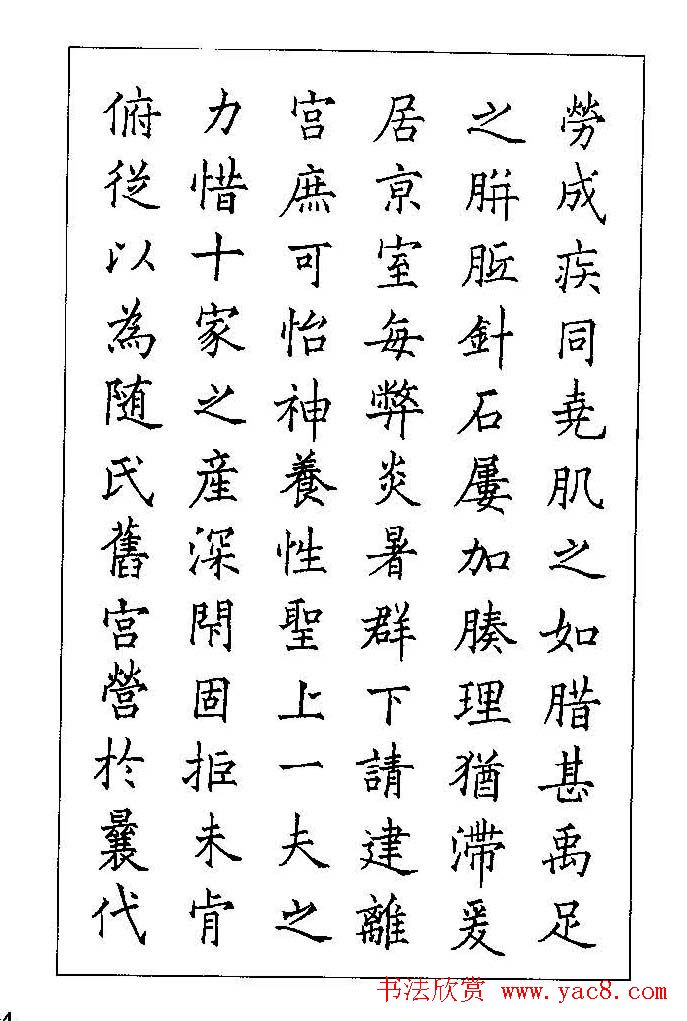 勞成疾同堯肌之如腊甚禹足
之胼胝針石屢加腠理猶滯爰
居京室每弊炎暑群下請建離
宮庶可怡神養性聖上一夫之
力惜十家之産深閇固拒未肯
俯從以為随氏舊宮營於曩代
书法欣赏 www.yac8.com
4